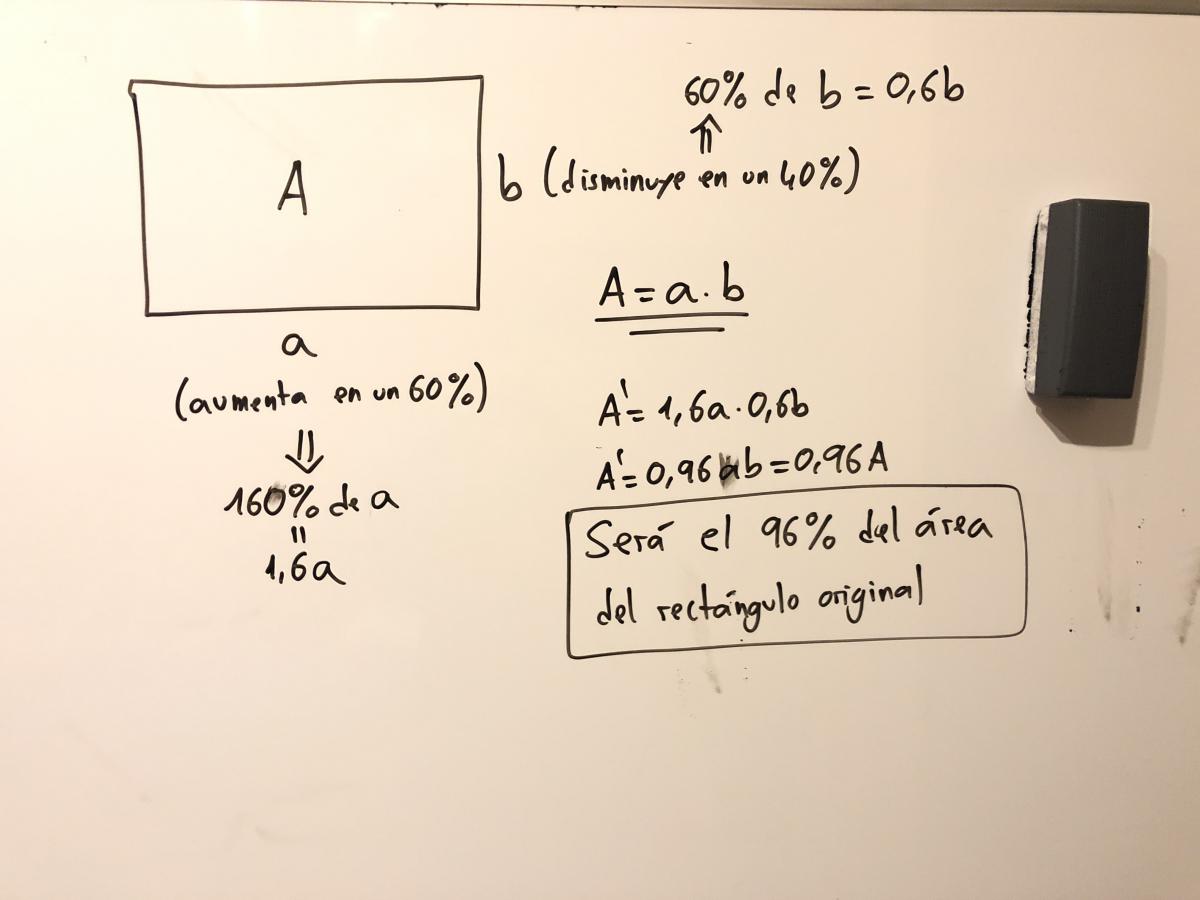 A
b (disminuye en un 40%)
⇑
60% de b = 0,6b
a
(aumenta en un 60%)
⇓
160% de a
=
1,6a
A = a · b
A' = 1,6a · 0,6b
A' = 0,96ab = 0,96A
Será el 96% del área
del rectángulo original